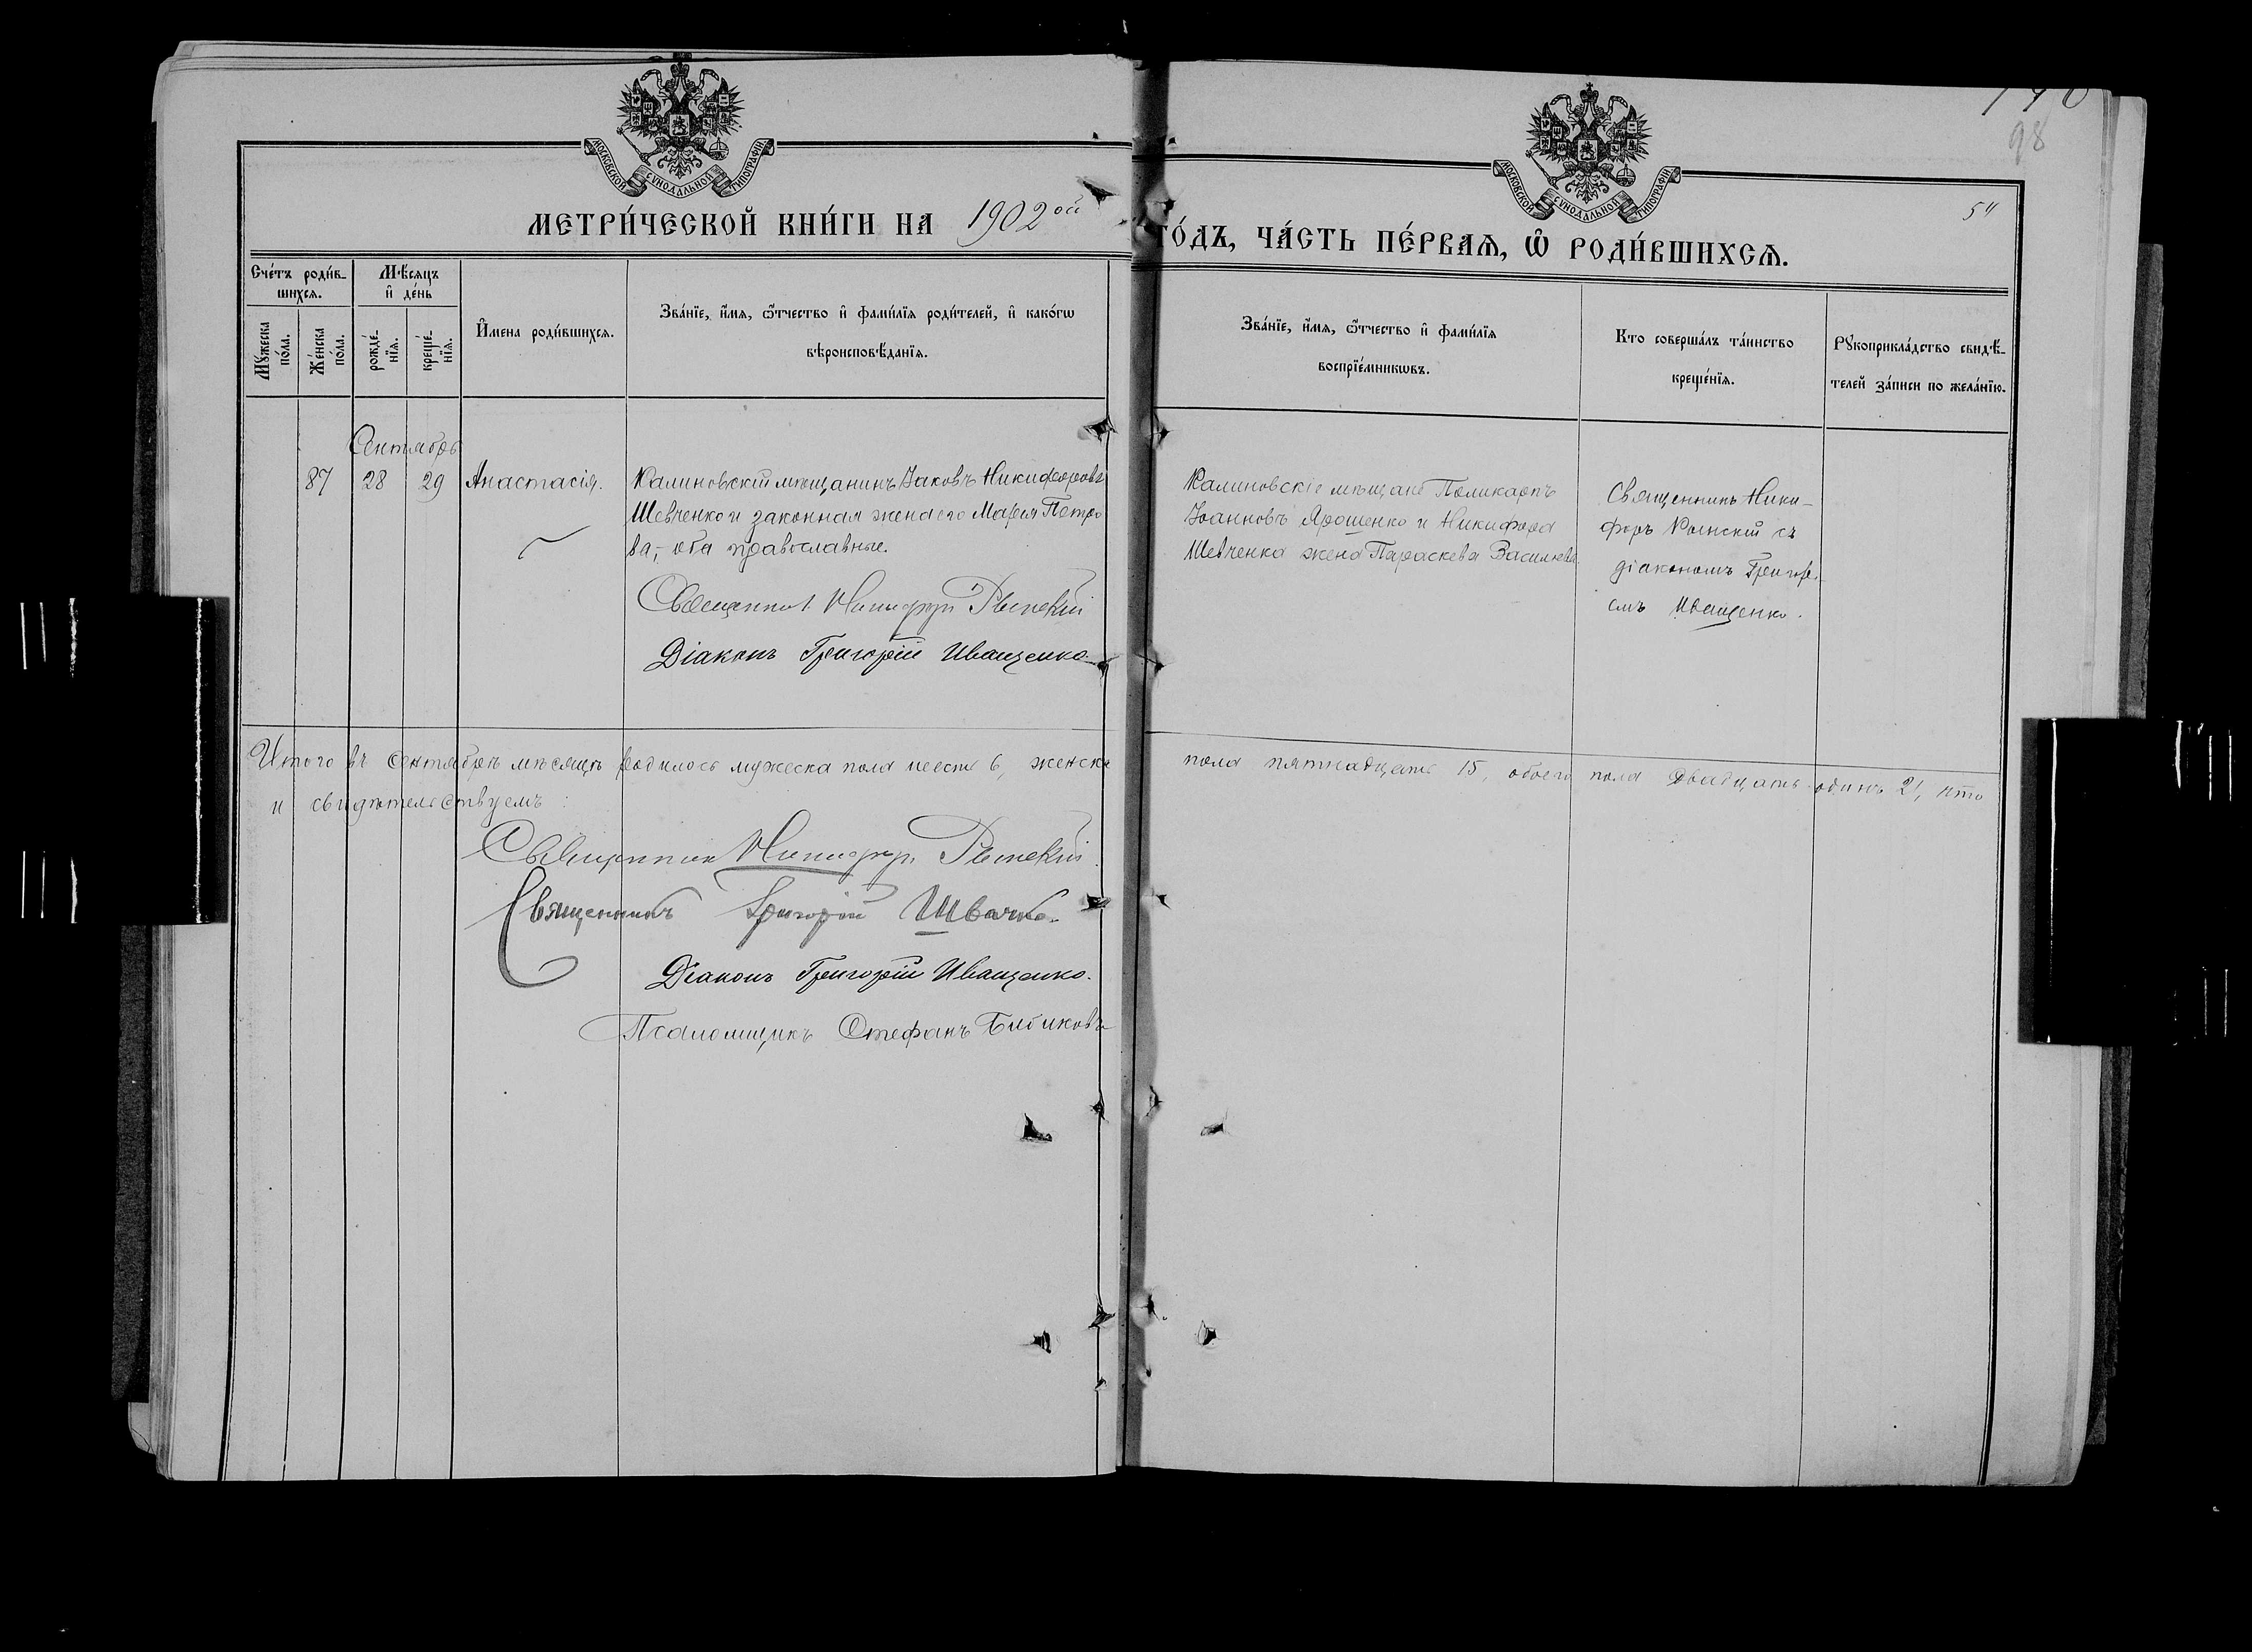 МОСКОВСКОЙ СѴНОДАЛЬНОЙ ТИПОГРАФІИ
МОСКОВСКОЙ СѴНОДАЛЬНОЙ ТИПОГРАФІИ
98
54
МЕТРИ́ЧЕСКОЙ КНИ́ГИ НА 1902ой ГО́ДЪ, ЧА́СТЬ ПЕ́РВАѦ, Ѡ҆ РОДИ́ВШИХСѦ.
Сче́тъ роди́в-
шихсѧ.
Мꙋ́жеска
по́ла.
Же́нска
по́ла.
Мѣ́сѧцъ
и҆ де́нь
рожде́-
нїѧ.
креще́-
нїѧ.
И҆мена роди́вшихсѧ.
Зва́нїе, и҆́мѧ, ѻ҆́тчество и҆ фами́лїѧ роди́телей, и҆ како́гѡ
вѣроисповѣ́данїѧ.
Зва́нїе, и҆́мѧ, ѻ҆́тчество и҆ фами́лїѧ
воспрїе́мникѡвъ.
Кто соверша́лъ та́инство
креще́нїѧ.
Рꙋкоприкла́дство свидѣ́-
телей за́писи по жела́нїю.
Сентябрь
87 28 29 Анастасія.
Калиновскій мѣщанинъ Іаковъ Никифоровъ
Шевченко и законная жена его Марія Петро
ва, оба православные.
Священник Никифор Рыпскій
Діаконъ Григорій Иващенко
Калиновскіе мѣщане Поликарпъ
Іоанновъ Ярошенко и Никифора
Шевченка жена Параскева Василіева.
Священникъ Ники-
форъ съ
діакономъ Григорі-
емъ Иващенко.
Итого въ Сентябрѣ мѣсяцѣ родилось мужеска пола шесть 6, женска пола пятнадцать 15, обоего пола двадцать одинъ 21, что
и свидѣтельствуемъ:
Священник Никифор
Священникъ Григорій Швачко.
Діаконъ Григорій Иващенко.
Псаломщикъ Стефанъ Бибиковъ